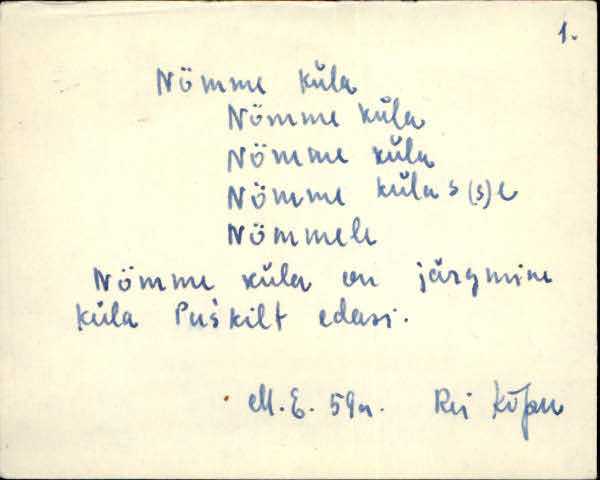 1.
Nõmme küla
Nõmme küla
Nõmme küla
Nõmme küla s(s)e
Nõmmele
Nõmme küla on järgmine
küla Puskilt edasi.
M.E. 59a. Rei Kõpu